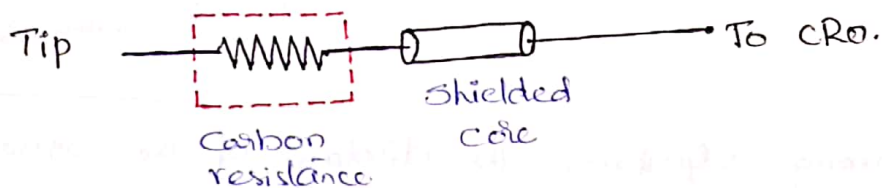 Tip
To CRO.
Carbon
resistance
Shielded
core